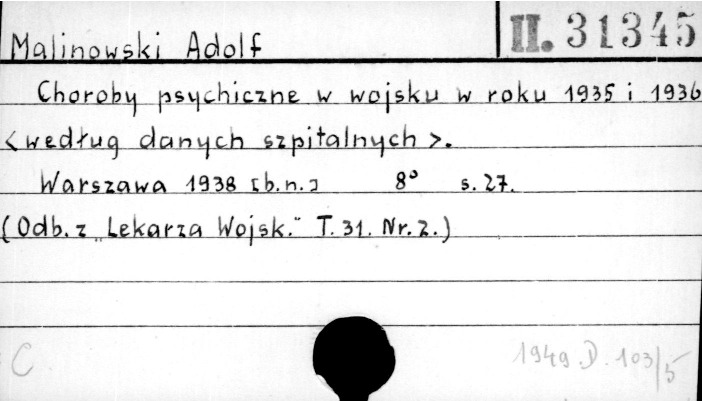 Malinowski Adolf
II. 31345
Choroby psychiczne w wojsku w roku 1935 i 1936
<według danych szpitalnych>.
Warszawa 1938 [b.n.] 8° s. 27.
(Odb. z „Lekarza Wojsk." T. 31. Nr. 2.)
C
1949.D.103/5